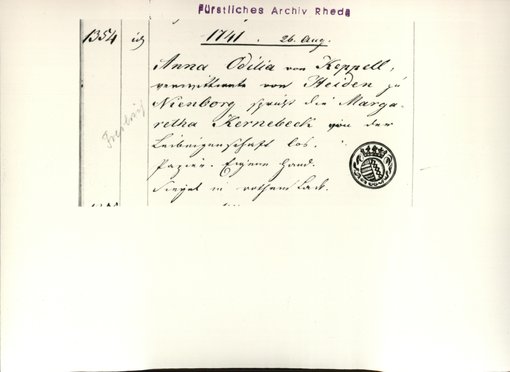 Fürstliches Archiv Rheda
1354
1741. 26. Aug.
Anna Odilia von Keppell,
verwittwete von Heiden zu
Nienborg spricht die Marga-
retha Kernebeck von der
Leibeigenschaft los.
Papier. Eigene Hand.
Siegel in rothem Lack.